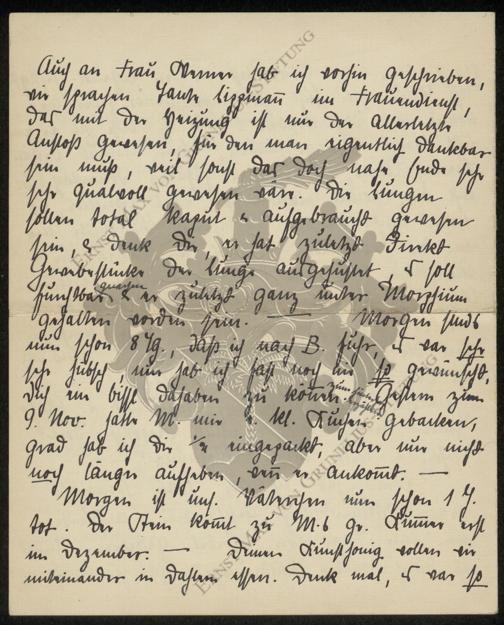 Auch an Frau Werner hab ich vorhin geschrieben,
wir sprachen Tante Lippmann im Frauendienst,
das mit der Heizung ist nur der allerletzte
Anstoß gewesen, für den man eigentlich dankbar
sein muß, weil sonst das doch nahe Ende sehr
sehr qualvoll gewesen wäre. Die Lungen
sollen total kaput u. aufgebraucht gewesen
sein, u. denk Dir, er hat zuletzt direkt
Gewebestücke der Lunge ausgehustet, es soll
furchtbar gewesen & er zuletzt ganz unter Morphium
gehalten worden sein. — Morgen sinds
nun schon 8 Tg., daß ich nach B. fuhr, es war sehr
sehr hübsch, nur hab ich fast noch nie so gewünscht,
Dich ein bissl dahaben zu können. Gestern zum
9. Nov. hatte M. mir 2. kl. Kuchen gebacken,
grad hab ich die 1/2 eingepackt, aber nur nicht
noch länger aufheben, wenn er ankommt. —
Morgen ist uns. Väterchen nun schon 1 J.
tot. Der Stein kommt zu M.s gr. Kummer erst
im Dezember. — Deinen Kunsthonig wollen wir
miteinander in Dahlem essen. Denk mal, es war so
ERNST MAX VON GRUNELIUS-STIFTUNG
ERNST MAX VON GRUNELIUS-STIFTUNG